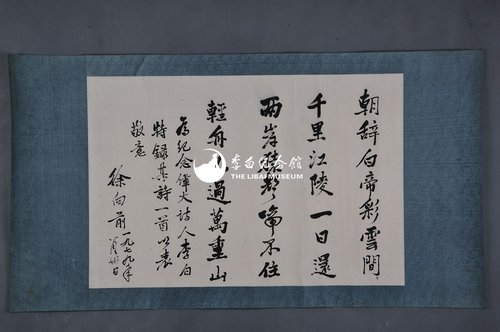 朝辞白帝彩雲間
千里江陵一日還
两岸猿声啼不住
輕舟已過萬重山
为紀念偉大詩人李白
特録其詩一首以表
敬意
徐向前一九七九年
李白纪念館
THE LIBAI MUSEUM